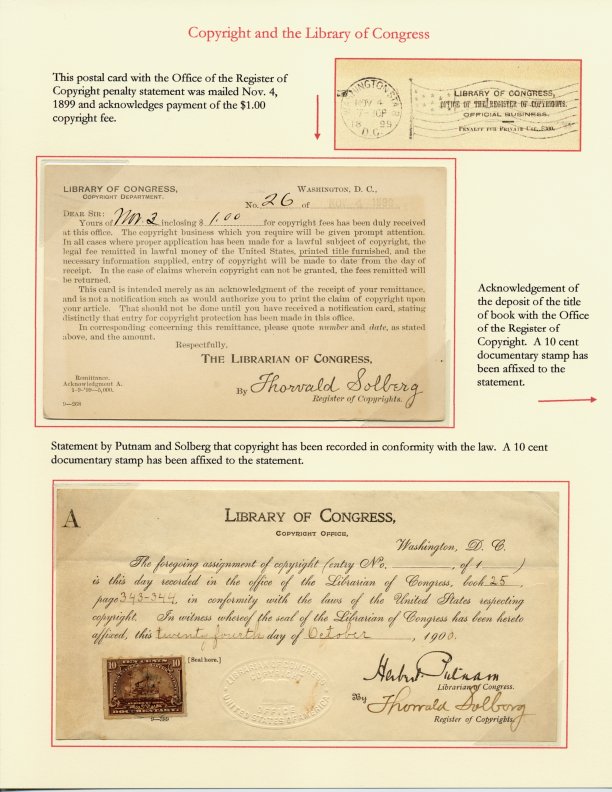 Copyright and the Library of Congress
This postal card with the Office of the Register of
Copyright penalty statement was mailed Nov. 4,
1899 and acknowledges payment of the $1.00
copyright fee.
WASHINGTON, STA.
NOV 4
18 99
D.C.
LIBRARY OF CONGRESS,
OFFICE OF THE REGISTER OF COPYRIGHTS.
OFFICIAL BUSINESS.
PENALTY FOR PRIVATE USE, $300.
LIBRARY OF CONGRESS,
COPYRIGHT DEPARTMENT.
WASHINGTON, D. C.,
No. 26 of NOV 4 1899
DEAR SIR:
Yours of Nov. 2 inclosing $ 1.00 for copyright fees has been duly received
at this office. The copyright business which you require will be given prompt attention.
In all cases where proper application has been made for a lawful subject of copyright, the
legal fee remitted in lawful money of the United States, printed title furnished, and the
necessary information supplied, entry of copyright will be made to date from the day of
receipt. In the case of claims wherein copyright can not be granted, the fees remitted will
be returned.
This card is intended merely as an acknowledgment of the receipt of your remittance,
and is not a notification such as would authorize you to print the claim of copyright upon
your article. That should not be done until you have received a notification card, stating
distinctly that entry for copyright protection has been made in this office.
In corresponding concerning this remittance, please quote number and date, as stated
above, and the amount.
Respectfully,
THE LIBRARIAN OF CONGRESS,
Remittance.
Acknowledgment A.
5-9-'99—5,000.
By Thorvald Solberg
Register of Copyrights.
9—268
Acknowledgement of
the deposit of the title
of book with the Office
of the Register of
Copyright. A 10 cent
documentary stamp has
been affixed to the
statement.
Statement by Putnam and Solberg that copyright has been recorded in conformity with the law. A 10 cent
documentary stamp has been affixed to the statement.
A
LIBRARY OF CONGRESS,
COPYRIGHT OFFICE,
Washington, D. C.
The foregoing assignment of copyright (entry No. , of 1 )
is this day recorded in the office of the Librarian of Congress, book 25,
page 343-344, in conformity with the laws of the United States respecting
copyright. In witness whereof the seal of the Librarian of Congress has been hereto
affixed, this twenty fourth day of October, 1900.
[Seal here.]
10 TEN CENTS 10
DOCUMENTARY
LIBRARIAN OF CONGRESS
COPYRIGHT
OFFICE
UNITED STATES OF AMERICA
Herbert Putnam
Librarian of Congress.
By Thorvald Solberg
Register of Copyrights.